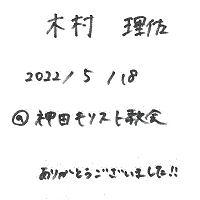 木村 理佐
2022/5/18
@神田モリスト歌会
ありがとうございました!!